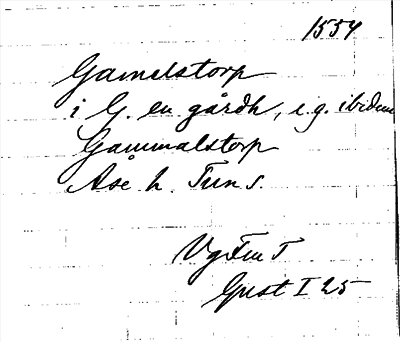 1554
Gamelstorp
i G. en gårdh, i.g. ibidem
Gammalstorp
Åse h. Tun s.
Gust I 25